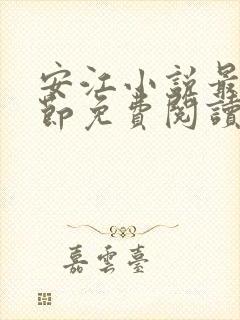 安江小说最
節免費閱讀
嘉雲臺